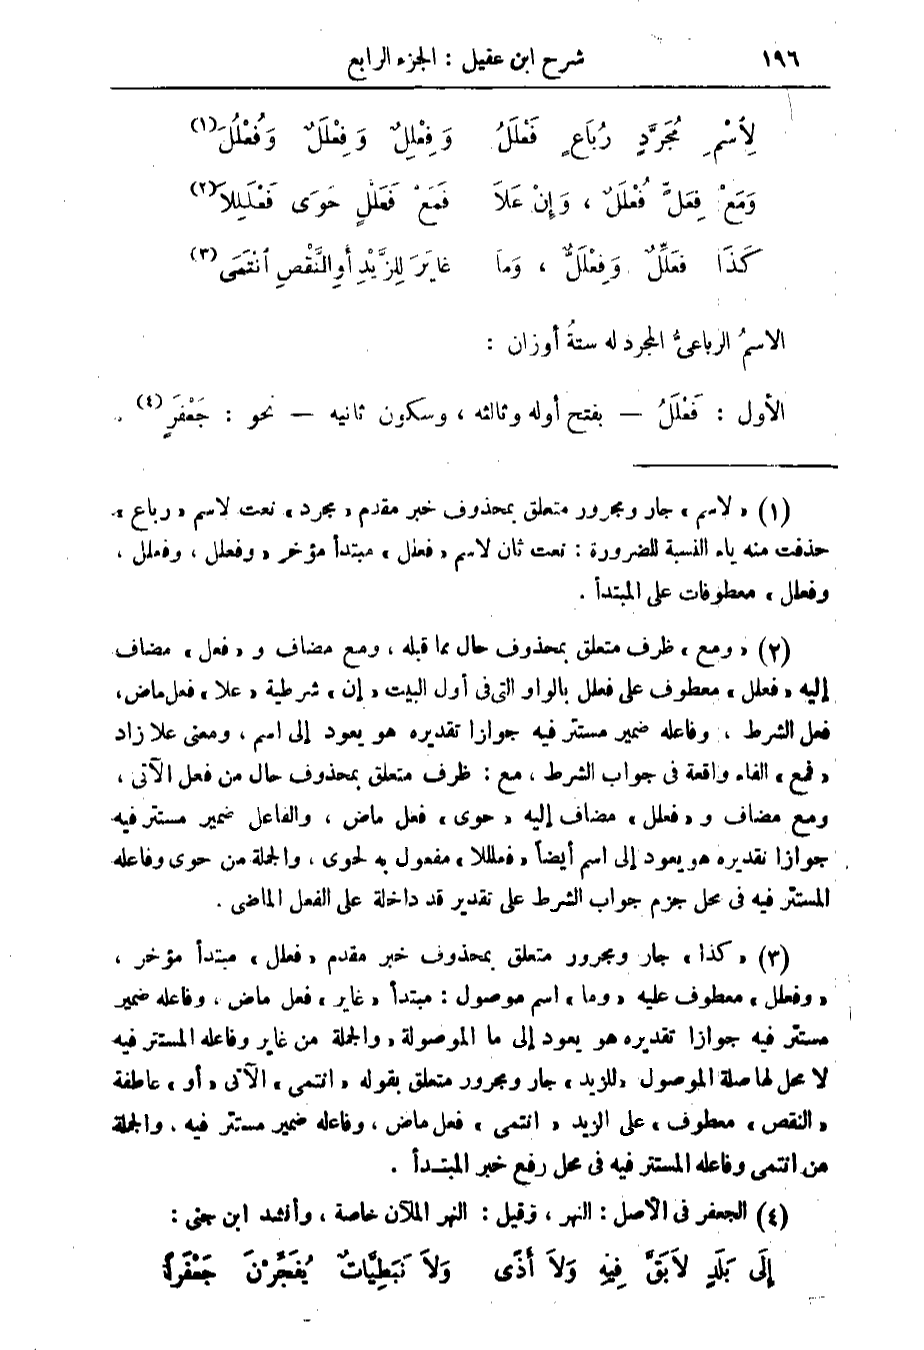 ١٩٦ شرح ابن عقيل : الجزء الرابع
لِاُسْمٍ مُجَرَّدٍ رُبَاعٍ فَعْلَلُ وَفِعْلِلٌ وَفِعْلَلٌ وَفُعْلُلُ (١)
وَمَعْ فِعَلٍّ فُعْلَلٌ ، وَإِنْ عَلاَ فَمَعْ فَعَلَّلٍ حَوَى فَعْلَلِلاَ (٢)
كَذَا فُعَلِّلٌ وَفِعْلَلٌّ ، وَمَا غَايَرَ لِلزَّيْدِ أَوِ النَّقْصِ اُنْتَمَى (٣)
الاسمُ الرباعىُّ المجرد له ستةُ أوزان :
الأول : فَعْلَلُ — بفتح أوله وثالثه ، وسكون ثانيه — نحو : جَعْفَرٍ (٤) .
(١) « لاسم » جار ومجرور متعلق بمحذوف خبر مقدم « مجرد » نعت لاسم « رباع »
حذفت منه ياء النسبة للضرورة : نعت ثان لاسم « فعلل » مبتدأ مؤخر « وفعلل ، وفعلل ،
وفعلل » معطوفات على المبتدأ .
(٢) « ومع » ظرف متعلق بمحذوف حال مما قبله ، ومع مضاف و « فعل » مضاف
إليه « فعلل » معطوف على فعلل بالواو التى فى أول البيت « إن » شرطية « علا » فعل ماض ،
فعل الشرط ، وفاعله ضمير مستتر فيه جوازا تقديره هو يعود إلى اسم ، ومعنى علا زاد
« فمع » الفاء واقعة فى جواب الشرط ، مع : ظرف متعلق بمحذوف حال من فعل الآتى ،
ومع مضاف و « فعلل » مضاف إليه « حوى » فعل ماض ، والفاعل ضمير مستتر فيه
جوازا تقديره هو يعود إلى اسم أيضاً « فعلللا » مفعول به لحوى ، والجملة من حوى وفاعله
المستتر فيه فى محل جزم جواب الشرط على تقدير قد داخلة على الفعل الماضى .
(٣) « كذا » جار ومجرور متعلق بمحذوف خبر مقدم « فعلل » مبتدأ مؤخر ،
« وفعلل » معطوف عليه « وما » اسم موصول : مبتدأ « غاير » فعل ماض ، وفاعله ضمير
مستتر فيه جوازا تقديره هو يعود إلى ما الموصولة ، والجملة من غاير وفاعله المستتر فيه
لا محل لها صلة الموصول « للزيد » جار ومجرور متعلق بقوله « انتمى » الآتى « أو » عاطفة
« النقص » معطوف » على الزيد « انتمى » فعل ماض ، وفاعله ضمير مستتر فيه ، والجملة
من انتمى وفاعله المستتر فيه فى محل رفع خبر المبتدأ .
(٤) الجعفر فى الأصل : النهر ، وقيل : النهر الملآن خاصة ، وأنشد ابن جنى :
إِلَى بَلَدٍ لاَبَقَّ فِيهِ وَلاَ أَذًى وَلاَ نَبَطِيَّاتٌ يُفَجِّرْنَ جَعْفَرَاً